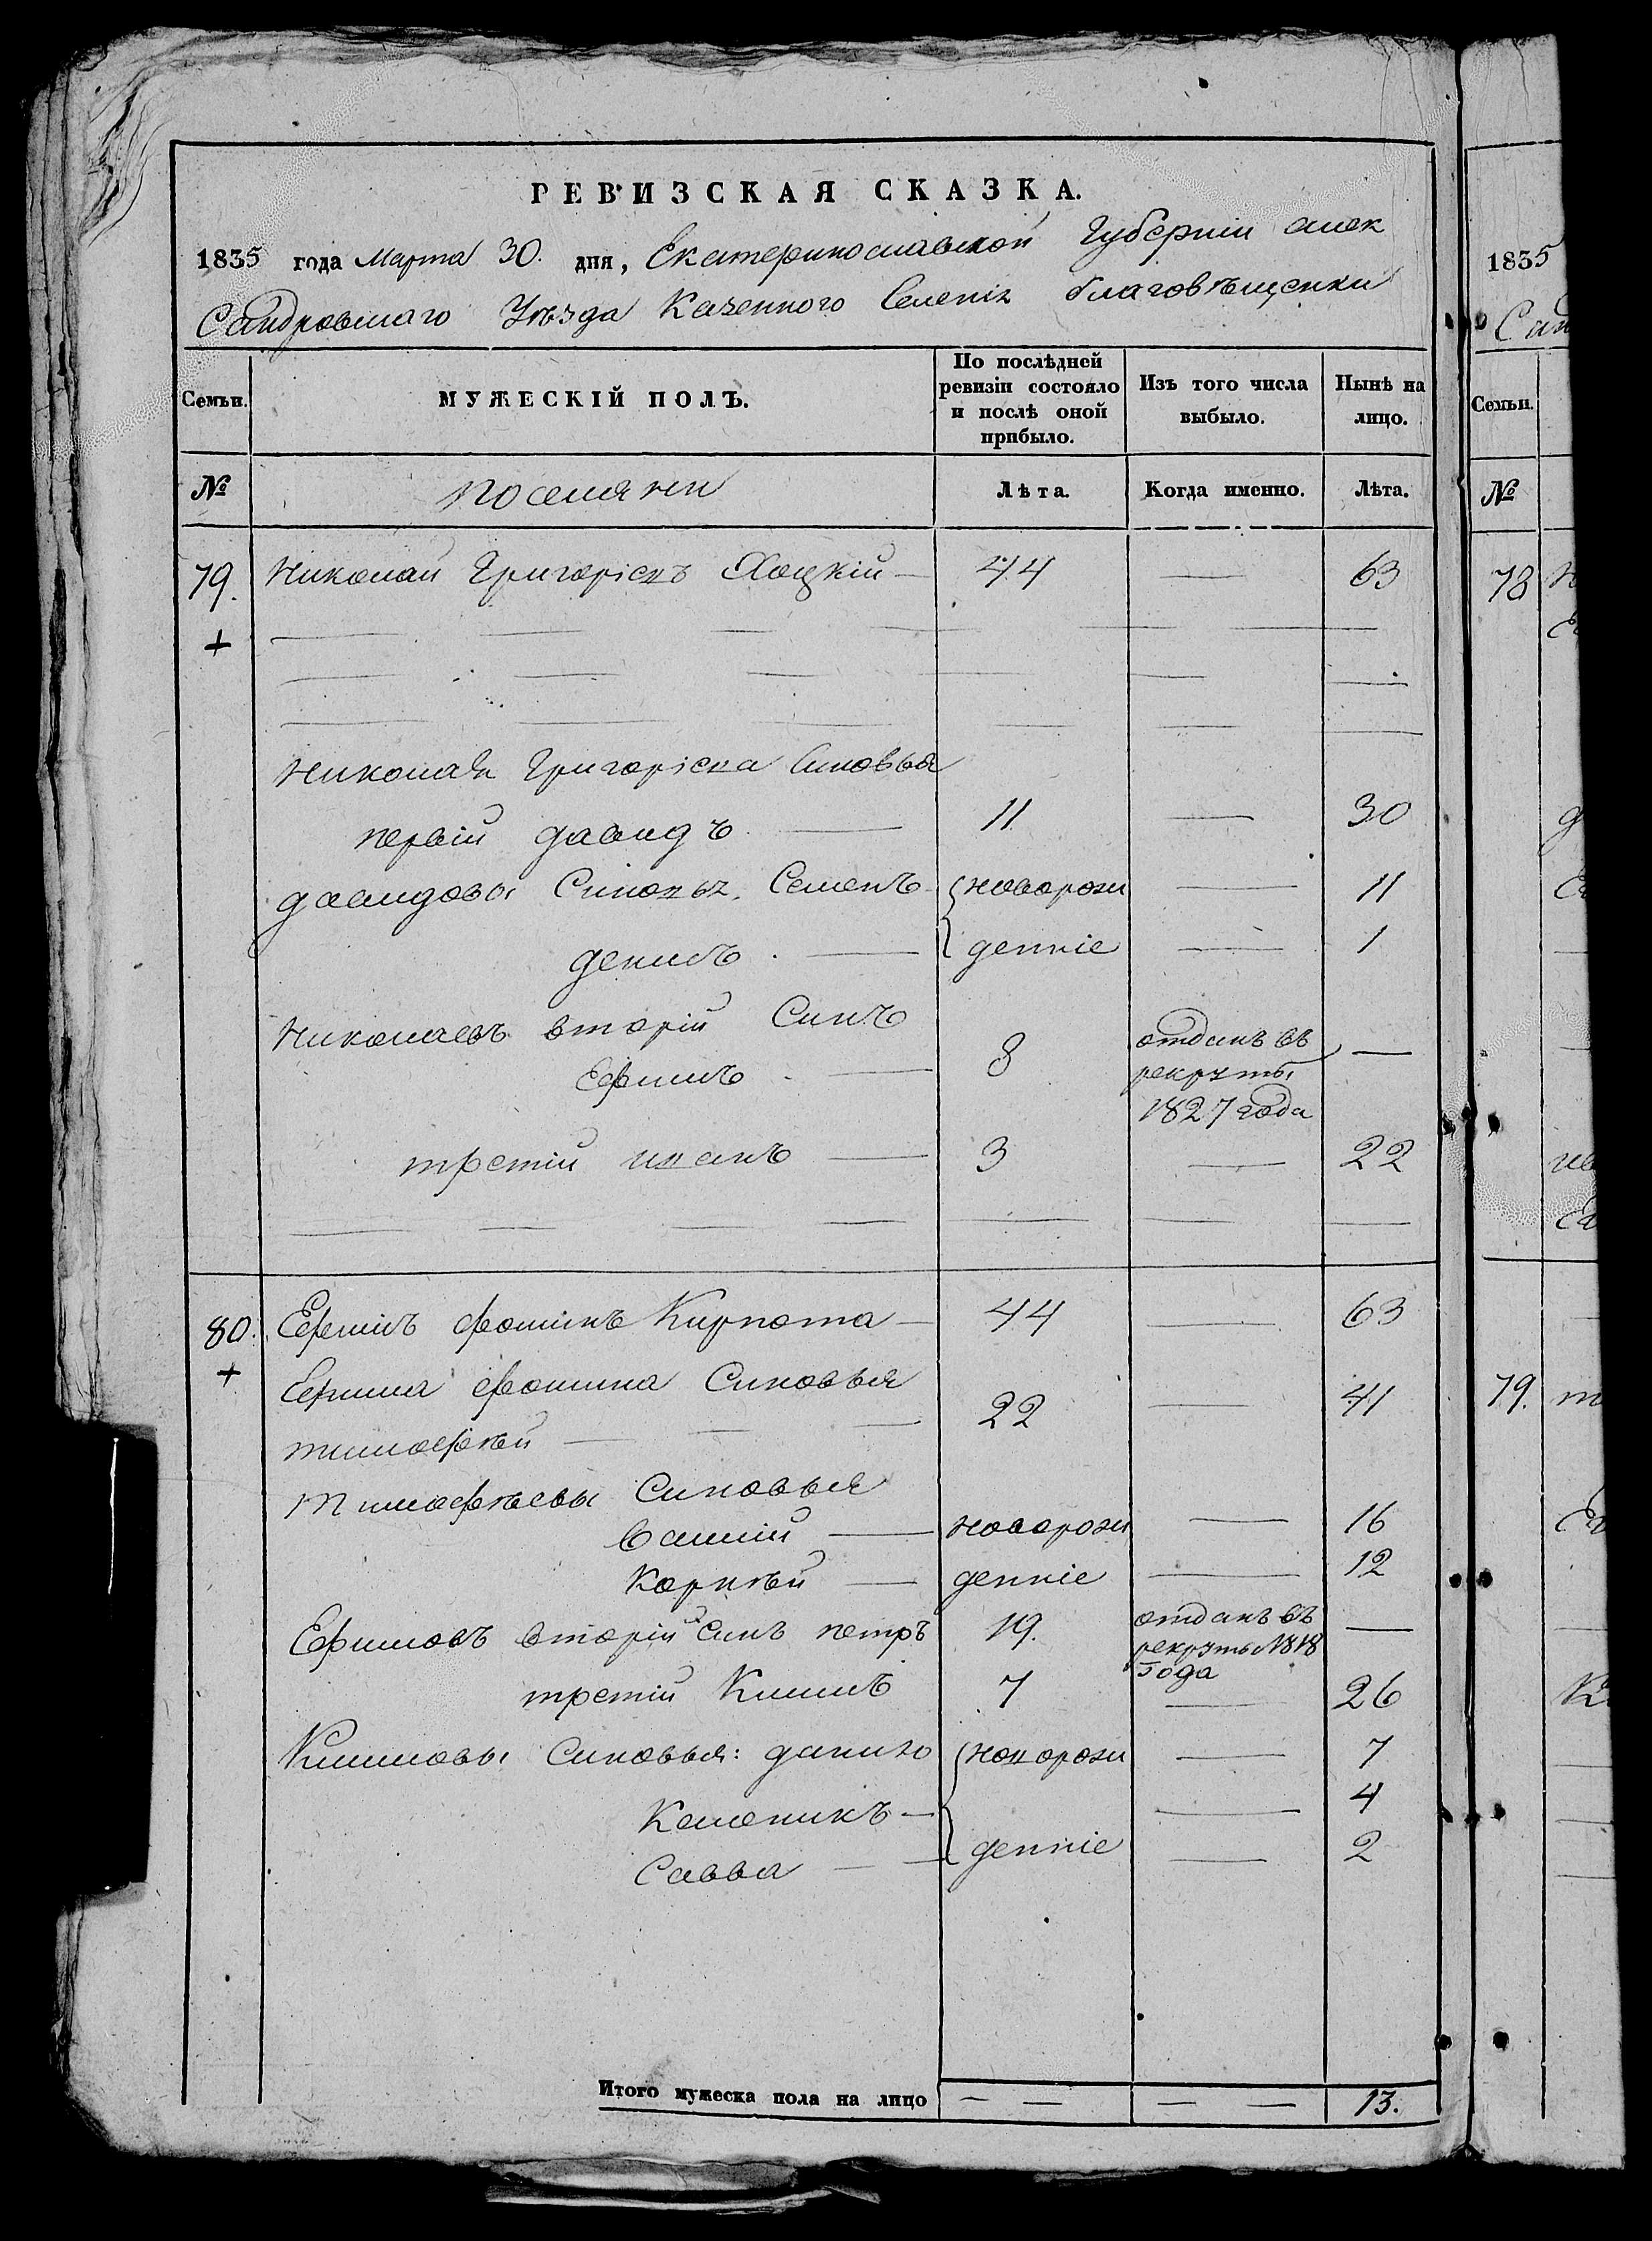 РЕВИЗСКАЯ СКАЗКА.
1835 года Марта 30. дня, Екатеринославской Губернии Алек
сандровскаго Уѣзда Казенного Селенія благовѣщенки
Семьи. МУЖЕСКІЙ ПОЛЪ. По послѣдней ревизіи состояло и послѣ оной прибыло. Изъ того числа выбыло. Нынѣ на лицо.
№ поселяни Лѣта. Когда именно. Лѣта.
79. Николай Григоріевъ Хоцкій — 44 — 63
+
Николая Григоріева Синовья
первій давидъ — 11 — 30
давидовы Синовья. Семенъ {новорож — 11
денисъ. — {денніе — 1
Николаевъ вторій Синъ
Ефимъ — 8 отданъ въ —
рекруты
1827 года
третій иванъ — 3 — 22
80. Ефимъ фоминъ Кирпота — 44 — 63
+
Ефима фомина Синовья
тимофѣй — 22 — 41
тимофѣевы Синовья
Василій — новорож — 16
Корнѣй — денніе — 12
Ефимовъ вторій Синъ петръ 19. отданъ въ —
рекруты 1818
года
третій Климъ 7 — 26
Климовы Синовья: данило {новорож — 7
Каленикъ — — 4
Савва — {денніе — 2
Итого мужеска пола на лицо — — — — 13.
1835
Сан
Семьи.
№
78
79.